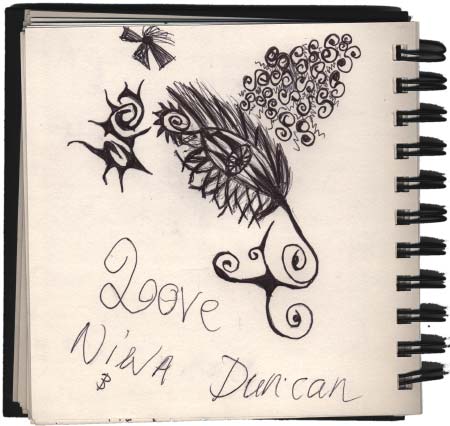 Love
Nina
Duncan